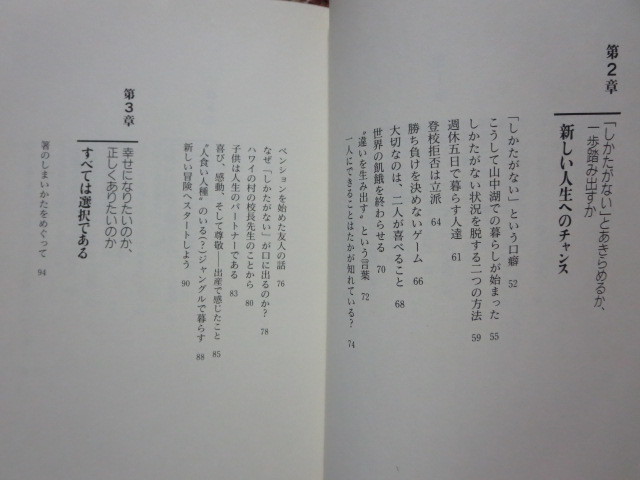 第2章
「しかたがない」とあきらめるか、
一歩踏み出すか
新しい人生へのチャンス
「しかたがない」という口癖 52
こうして山中湖での暮らしが始まった 55
しかたがない状況を脱する二つの方法 59
週休五日で暮らす人達 61
登校拒否は立派 64
勝ち負けを決めないゲーム 66
大切なのは、二人が喜べること 68
世界の飢餓を終わらせる 70
〝違いを生み出す〟という言葉 72
一人にできることはたかが知れている? 74
ペンションを始めた友人の話 76
なぜ「しかたがない」が口に出るのか? 78
ハワイの村の校長先生のことから 80
子供は人生のパートナーである 83
喜び、感動、そして尊敬——出産で感じたこと 85
〝人食い人種〟のいる(?)ジャングルで暮らす 88
新しい冒険へスタートしよう 90
第3章
幸せになりたいのか、
正しくありたいのか
すべては選択である
箸のしまいかたをめぐって 94